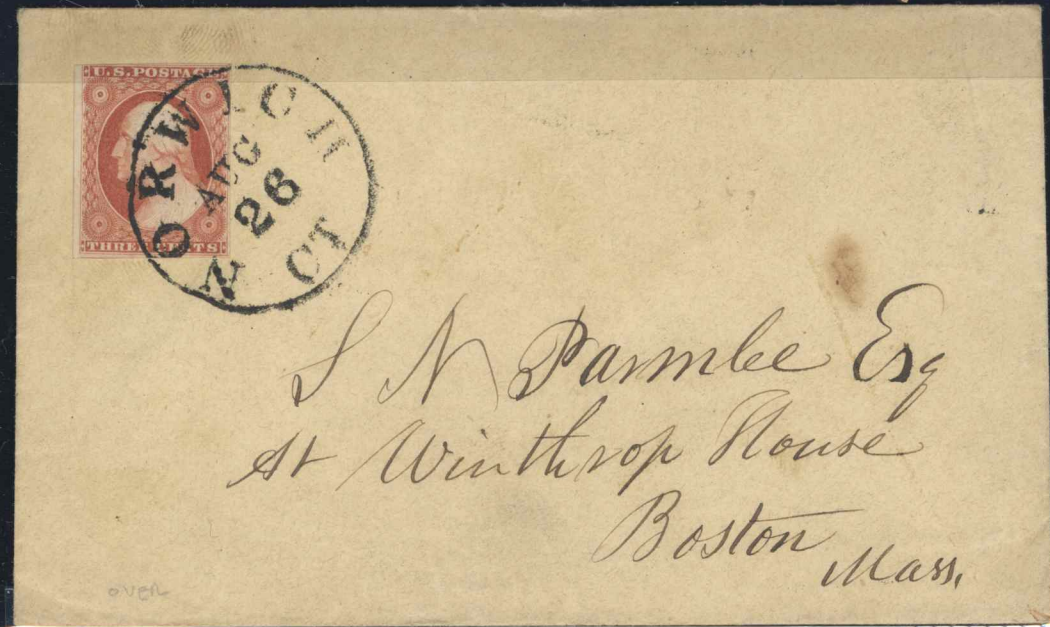 U.S. POSTAGE
THREE CENTS
NORWICH CT
AUG
26
S N Parmlee Esq
At Winthrop House
Boston
Mass.
OVER